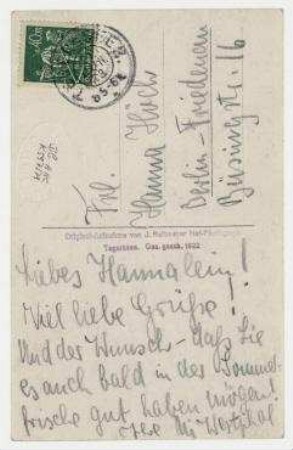 40 M
Frl.
Hanna Höch
Berlin-Friedenau
Büsingstr. 16
Original-Aufnahme von J. Reitmayer Hof-Photograph
Tegernsee. Ges. gesch. 1922
Liebes Hannalein!
Viel liebe Grüße!
Und der Wunsch – daß Sie
es auch bald in der Sommer-
frische gut haben mögen!
Ihre Mi Westphal